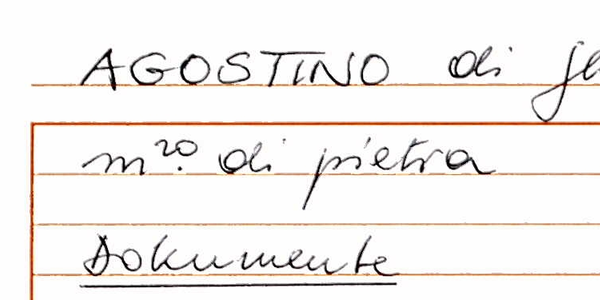 AGOSTINO di
m⁠ʳᵒ. di pietra
Dokumente